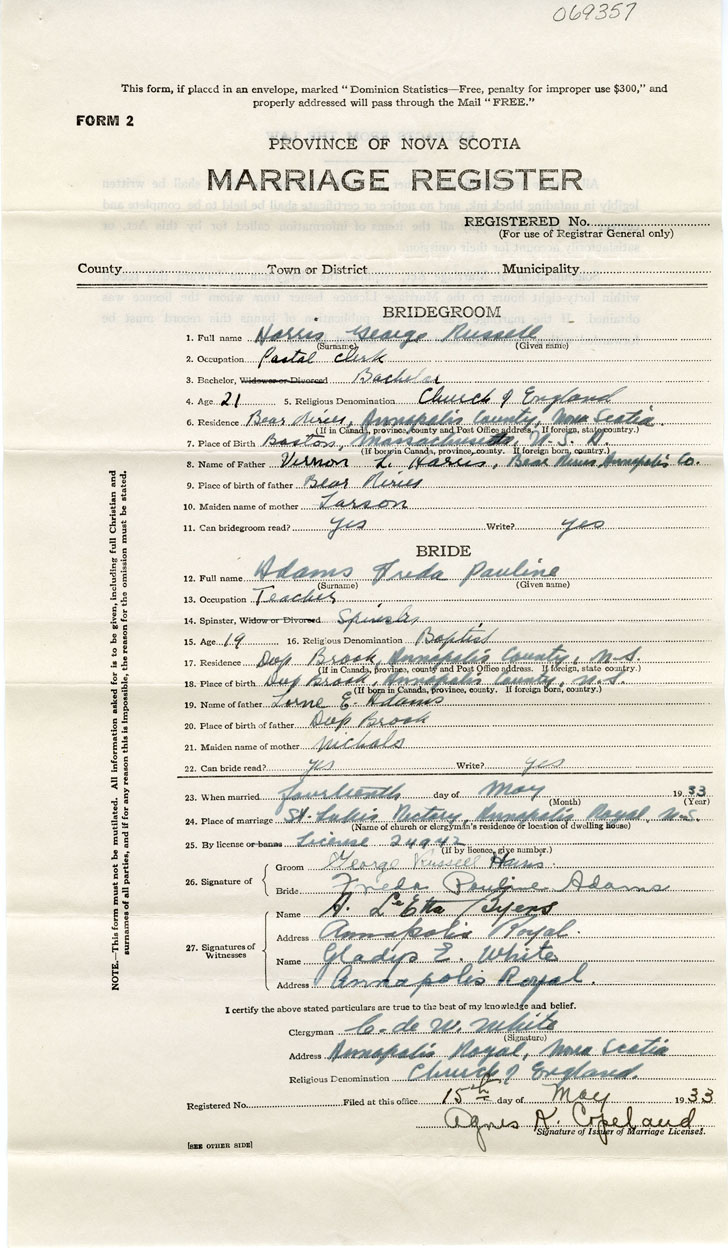 069357
This form, if placed in an envelope, marked "Dominion Statistics—Free, penalty for improper use $300," and
properly addressed will pass through the Mail "FREE."
FORM 2
PROVINCE OF NOVA SCOTIA
MARRIAGE REGISTER
REGISTERED No.
(For use of Registrar General only)
County Town or District Municipality
BRIDEGROOM
1. Full name Harris George Russell
(Surname) (Given name)
2. Occupation Postal Clerk
3. Bachelor, Widower or Divorced Bachelor
4. Age 21 5. Religious Denomination Church of England
6. Residence Bear River, Annapolis County, Nova Scotia
(If in Canada, province, county and Post Office address. If foreign, state country.)
7. Place of Birth Boston, Massachusetts, U.S.A.
(If born in Canada, province, county. If foreign born, country.)
8. Name of Father Vernon L. Harris, Bear River Annapolis Co.
9. Place of birth of father Bear River
10. Maiden name of mother Larson
11. Can bridegroom read? yes Write? yes
BRIDE
12. Full name Adams Freda Pauline
(Surname) (Given name)
13. Occupation Teacher
14. Spinster, Widow or Divorced Spinster
15. Age 19 16. Religious Denomination Baptist
17. Residence Deep Brook, Annapolis County, N.S.
(If in Canada, province, county and Post Office address. If foreign, state country.)
18. Place of birth Deep Brook, Annapolis County, N.S.
(If born in Canada, province, county. If foreign Born, country.)
19. Name of father Lorne E. Adams
20. Place of birth of father Deep Brook
21. Maiden name of mother Nichols
22. Can bride read? yes Write? yes
23. When married fourteenth day of May 1933
(Month) (Year)
24. Place of marriage St. Luke's Rectory, Annapolis Royal, N.S.
(Name of church or clergyman's residence or location of dwelling house)
25. By license or banns License 24942
(If by licence, give number.)
26. Signature of
Groom George Russell Harris
Bride Freda Pauline Adams
27. Signatures of Witnesses
Name A. LeEtta Byers
Address Annapolis Royal.
Name Gladys E. White
Address Annapolis Royal.
I certify the above stated particulars are true to the best of my knowledge and belief.
Clergyman C. de W. White
(Signature)
Address Annapolis Royal, Nova Scotia
Religious Denomination Church of England.
Registered No. Filed at this office 15th day of May 1933
Agnes K. Copeland
Signature of Issuer of Marriage Licenses.
[SEE OTHER SIDE]
NOTE.—This form must not be mutilated. All information asked for is to be given, including full Christian and
surnames of all parties, and if for any reason this is impossible, the reason for the omission must be stated.